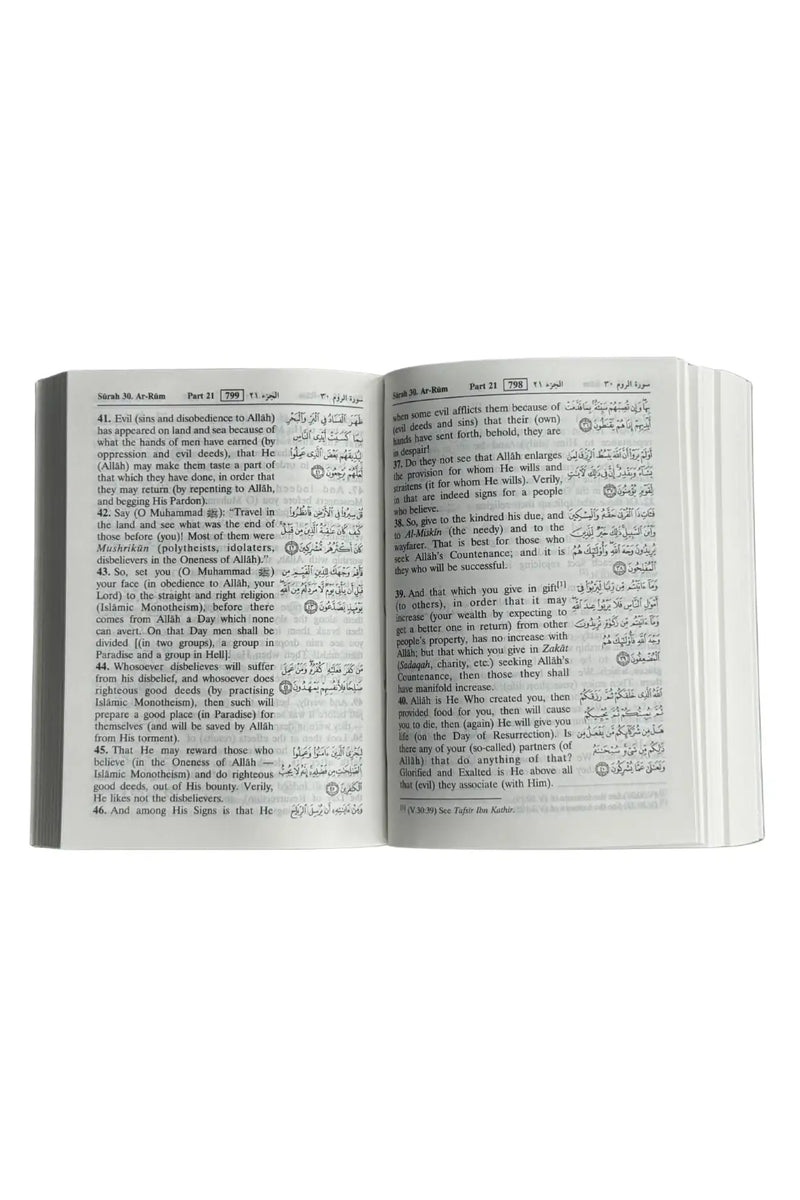 Sûrah 30. Ar-Rûm Part 21 798 الجزء ٢١ سورة الروم ٣٠
when some evil afflicts them because of
(evil deeds and sins) that their (own)
hands have sent forth, behold, they are
in despair!
37. Do they not see that Allâh enlarges
the provision for whom He wills and
straitens (it for whom He wills). Verily,
in that are indeed signs for a people
who believe.
38. So, give to the kindred his due, and
to Al-Miskîn (the needy) and to the
wayfarer. That is best for those who
seek Allâh's Countenance; and it is
they who will be successful.
39. And that which you give in gift[1]
(to others), in order that it may
increase (your wealth by expecting to
get a better one in return) from other
people's property, has no increase with
Allâh; but that which you give in Zakât
(Sadaqah, charity, etc.) seeking Allâh's
Countenance, then those they shall
have manifold increase.
40. Allâh is He Who created you, then
provided food for you, then will cause
you to die, then (again) He will give you
life (on the Day of Resurrection). Is
there any of your (so-called) partners (of
Allâh) that do anything of that?
Glorified and Exalted is He above all
that (evil) they associate (with Him).
بِهَا وَإِن تُصِبْهُمْ سَيِّئَةٌ بِمَا قَدَّمَتْ
أَيْدِيهِمْ إِذَا هُمْ يَقْنَطُونَ ٣٦
أَوَلَمْ يَرَوْا أَنَّ اللَّهَ يَبْسُطُ الرِّزْقَ لِمَن
يَشَاءُ وَيَقْدِرُ إِنَّ فِي ذَٰلِكَ لَآيَاتٍ
لِّقَوْمٍ يُؤْمِنُونَ ٣٧
فَآتِ ذَا الْقُرْبَىٰ حَقَّهُ وَالْمِسْكِينَ
وَابْنَ السَّبِيلِ ذَٰلِكَ خَيْرٌ لِّلَّذِينَ
يُرِيدُونَ وَجْهَ اللَّهِ وَأُولَٰئِكَ هُمُ
الْمُفْلِحُونَ ٣٨
وَمَا آتَيْتُم مِّن رِّبًا لِّيَرْبُوَا فِي
أَمْوَالِ النَّاسِ فَلَا يَرْبُوا عِندَ اللَّهِ
وَمَا آتَيْتُم مِّن زَكَاةٍ تُرِيدُونَ
وَجْهَ اللَّهِ فَأُولَٰئِكَ هُمُ
الْمُضْعِفُونَ ٣٩
اللَّهُ الَّذِي خَلَقَكُمْ ثُمَّ رَزَقَكُمْ
ثُمَّ يُمِيتُكُمْ ثُمَّ يُحْيِيكُمْ
هَلْ مِن شُرَكَائِكُم مَّن يَفْعَلُ مِن
ذَٰلِكُم مِّن شَيْءٍ سُبْحَانَهُ
وَتَعَالَىٰ عَمَّا يُشْرِكُونَ ٤٠
[1] (V.30:39) See Tafsir Ibn Kathir.
Sûrah 30. Ar-Rûm Part 21 799 الجزء ٢١ سورة الروم ٣٠
41. Evil (sins and disobedience to Allâh)
has appeared on land and sea because of
what the hands of men have earned (by
oppression and evil deeds), that He
(Allâh) may make them taste a part of
that which they have done, in order that
they may return (by repenting to Allâh,
and begging His Pardon).
42. Say (O Muhammad ﷺ): "Travel in
the land and see what was the end of
those before (you)! Most of them were
Mushrikûn (polytheists, idolaters,
disbelievers in the Oneness of Allâh)."
43. So, set you (O Muhammad ﷺ)
your face (in obedience to Allâh, your
Lord) to the straight and right religion
(Islâmic Monotheism), before there
comes from Allâh a Day which none
can avert. On that Day men shall be
divided [(in two groups), a group in
Paradise and a group in Hell].
44. Whosoever disbelieves will suffer
from his disbelief, and whosoever does
righteous good deeds (by practising
Islâmic Monotheism), then such will
prepare a good place (in Paradise) for
themselves (and will be saved by Allâh
from His torment).
45. That He may reward those who
believe (in the Oneness of Allâh —
Islâmic Monotheism) and do righteous
good deeds, out of His bounty. Verily,
He likes not the disbelievers.
46. And among His Signs is that He
ظَهَرَ الْفَسَادُ فِي الْبَرِّ وَالْبَحْرِ
بِمَا كَسَبَتْ أَيْدِي النَّاسِ
لِيُذِيقَهُم بَعْضَ الَّذِي عَمِلُوا
لَعَلَّهُمْ يَرْجِعُونَ ٤١
قُلْ سِيرُوا فِي الْأَرْضِ فَانظُرُوا
كَيْفَ كَانَ عَاقِبَةُ الَّذِينَ مِن قَبْلُ
كَانَ أَكْثَرُهُم مُّشْرِكِينَ ٤٢
فَأَقِمْ وَجْهَكَ لِلدِّينِ الْقَيِّمِ مِن
قَبْلِ أَن يَأْتِيَ يَوْمٌ لَّا مَرَدَّ لَهُ مِنَ اللَّهِ
يَوْمَئِذٍ يَصَّدَّعُونَ ٤٣
مَن كَفَرَ فَعَلَيْهِ كُفْرُهُ وَمَنْ عَمِلَ
صَالِحًا فَلِأَنفُسِهِمْ يَمْهَدُونَ ٤٤
لِيَجْزِيَ الَّذِينَ آمَنُوا وَعَمِلُوا
الصَّالِحَاتِ مِن فَضْلِهِ إِنَّهُ لَا يُحِبُّ
الْكَافِرِينَ ٤٥
وَمِنْ آيَاتِهِ أَن يُرْسِلَ الرِّيَاحَ